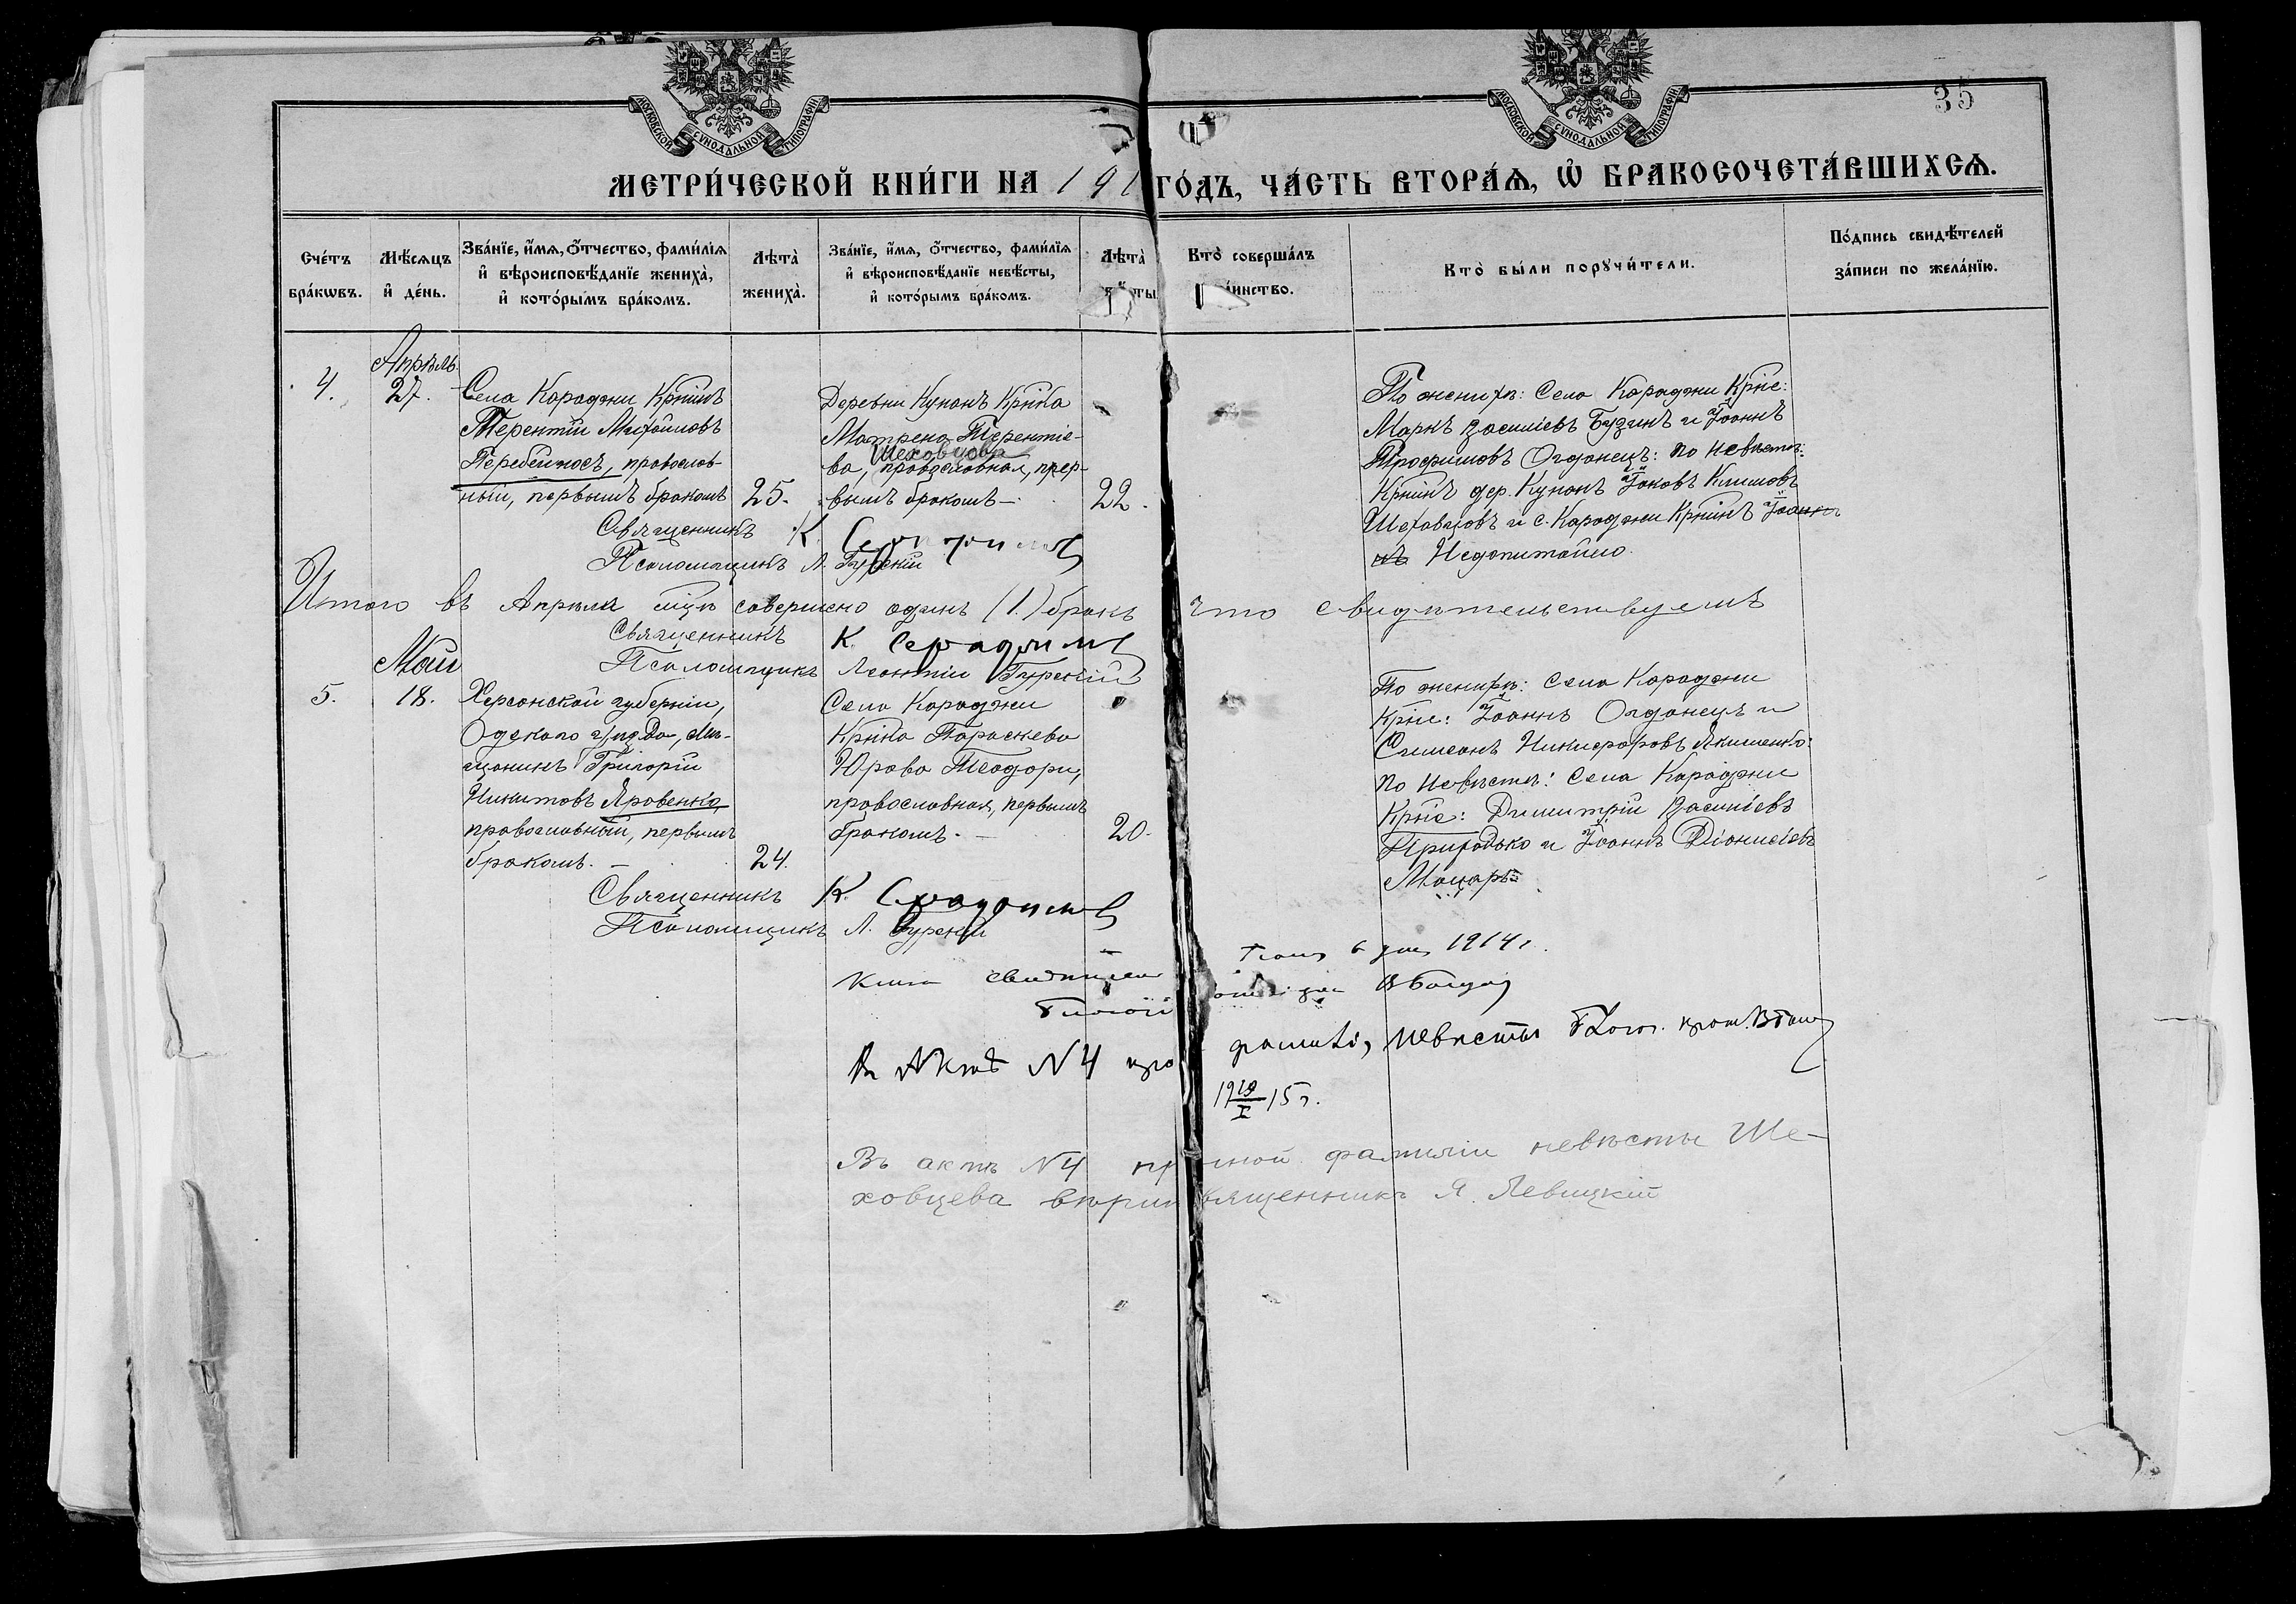 35
МОСКОВСКОЙ СѴНОДАЛЬНОЙ ТИПОГРАФІИ
МОСКОВСКОЙ СѴНОДАЛЬНОЙ ТИПОГРАФІИ
МЕТРИ́ЧЕСКОЙ КНИ́ГИ НА 191 ГО́ДЪ, ЧА́СТЬ ВТОРА́Ѧ, Ѽ БРАКОСОЧЕТА́ВШИХСѦ.
Сче́тъ бра́кѡвъ.
Мѣ́сяцъ и҆ де́нь.
Зва́нїе, и҆́мя, ѻ҆́тчество, фами́лїя и҆ вѣроисповѣ́данїе жениха̀, и҆ кото́рымъ бра́комъ.
Лѣта̀ жениха̀.
Зва́нїе, и҆́мя, ѻ҆́тчество, фами́лїя и҆ вѣроисповѣ́данїе невѣ́сты, и҆ кото́рымъ бра́комъ.
Лѣта̀
Кто̀ соверша́лъ
Кто̀ бы́ли порꙋчи́тели.
По́дпись свидѣ́телей за́писи по жела́нїю.
4.
Апрѣль
27.
Села Караджи Крнинъ
Терентій Михайловъ
Перебейносъ, православ-
ный, первымъ бракомъ
25.
Деревни Кунанъ Крнка
Матрена Терентіе-
Шеховцова
ва, православная, пер-
вымъ бракомъ —
22.
По женихѣ: Села Караджи Крне:
Маркъ Василіевъ Бузинъ и Іоаннъ
Трофимовъ Огданецъ: по невѣстѣ:
Крнинъ дер. Кунанъ Іаковъ Климовъ
Шеховцовъ и с. Караджи Крнинъ Іоан
нъ Недопитайло.
Священникъ К. Серафимовъ
Псаломщикъ Л. Гурскій
Итого въ Апрѣлѣ мцѣ совершено одинъ (1.) бракъ что свидѣтельствуемъ
Священникъ К. Серафимовъ
Псаломщикъ Леонтій Гурскій
5.
Май
18.
Херсонской губерніи,
Одескаго уѣзда, мѣ-
щанинъ Григорій
Никитовъ Яровенко,
православный, первымъ
бракомъ. —
24.
Села Караджи
Крнка Параскева
Юрова Теодори,
православная, первымъ
бракомъ. —
20.
По женихѣ: Села Караджи
Крне: Іоаннъ Огданецъ и
Симеонъ Никифоровъ Якименко:
по невѣстѣ: Села Караджи
Крне: Димитрій Василіевъ
Приходько и Іоаннъ Діонисіевъ
Моцаръ
Священникъ К. Серафимовъ
Псаломщикъ Л. Гурскій
1914 г.
Въ Актѣ №4 фамилі невѣсты
19 19/I 15 г.
Въ актѣ №4 ной фамиліи невѣсты Ше-
ховцева вѣрн вященникъ Я. Левицкій